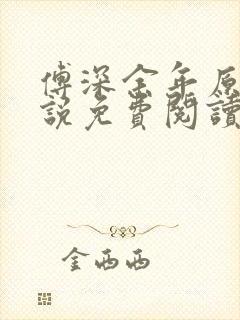 傅深金年原
說免費閱讀
金西西